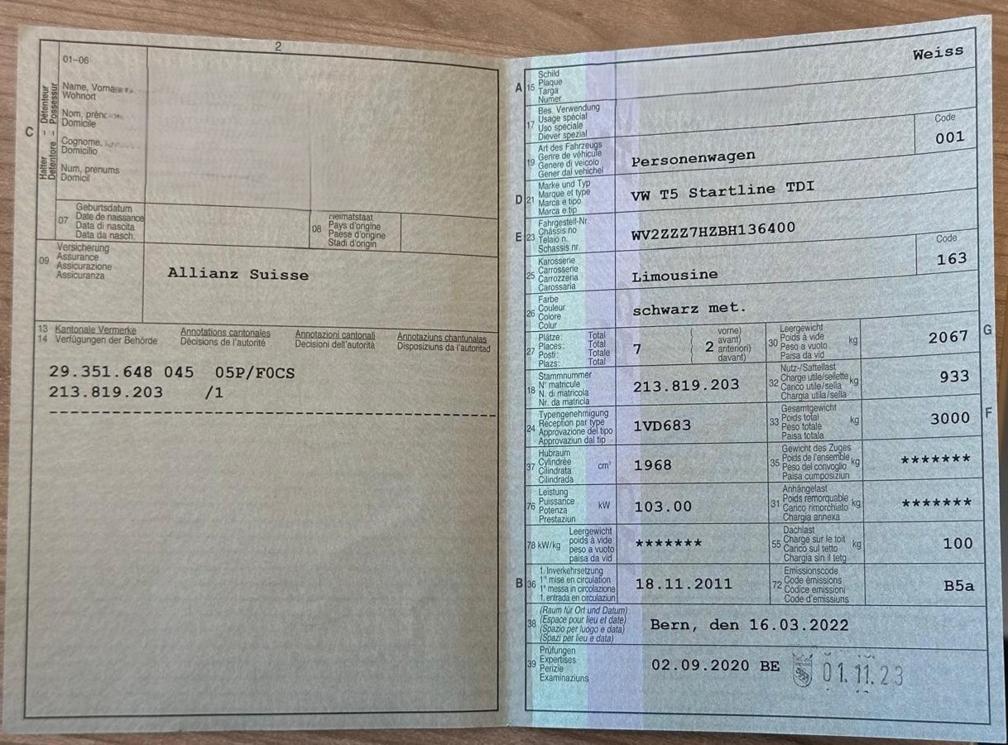 2
01-06
C
Halter Détenteur
Detentore Possessur
Name, Vorname
Wohnort
Nom, prénom
Domicile
Cognome,
Domicilio
Num, prenums
Domicil
07
Geburtsdatum
Date de naissance
Data di nascita
Data da nasch.
08
Heimatstaat
Pays d'origine
Paese d'origine
Stadi d'origin
09
Versicherung
Assurance
Assicurazione
Assicuranza
Allianz Suisse
13 Kantonale Vermerke Annotations cantonales Annotazioni cantonali Annotaziuns chantunalas
14 Verfügungen der Behörde Décisions de l'autorité Decisioni dell'autorità Disposiziuns da l'autoritad
29.351.648 045 05P/F0CS
213.819.203 /1
A 15
Schild
Plaque
Targa
Numer
Weiss
17
Bes. Verwendung
Usage spécial
Uso speciale
Diever spezial
19
Art des Fahrzeugs
Genre de véhicule
Genere di veicolo
Gener dal vehichel
Personenwagen
Code
001
D 21
Marke und Typ
Marque et type
Marca e tipo
Marca e tip
VW T5 Startline TDI
E 23
Fahrgestell-Nr.
Châssis no
Telaio n.
Schassis nr.
WV2ZZZ7HZBH136400
25
Karosserie
Carrosserie
Carrozzeria
Carossaria
Limousine
Code
163
26
Farbe
Couleur
Colore
Colur
schwarz met.
27
Plätze: Total
Places: Total
Posti: Totale
Plazs: Total
7
( 2 vorne)
avant)
anteriori)
davant)
30
Leergewicht
Poids à vide kg
Peso a vuoto
Paisa da vid
2067
G
18
Stammnummer
N° matricule
N. di matricola
Nr. da matricla
213.819.203
32
Nutz-/Sattellast
Charge utile/sellette kg
Carico utile/sella
Chargia utila/sella
933
24
Typengenehmigung
Réception par type
Approvazione del tipo
Approvaziun dal tip
1VD683
33
Gesamtgewicht
Poids total kg
Peso totale
Paisa totala
3000
F
37
Hubraum
Cylindrée cm³
Cilindrata
Cilindrada
1968
35
Gewicht des Zuges
Poids de l'ensemble kg
Peso del convoglio
Paisa cumposiziun
*******
76
Leistung
Puissance kW
Potenza
Prestaziun
103.00
31
Anhängelast
Poids remorquable kg
Carico rimorchiato
Chargia annexa
*******
78 kW/kg
Leergewicht
poids à vide
peso a vuoto
paisa da vid
*******
55
Dachlast
Charge sur le toit kg
Carico sul tetto
Chargia sin il tetg
100
B 36
1. Inverkehrsetzung
1re mise en circulation
1a messa in circolazione
1. entrada en circulaziun
18.11.2011
72
Emissionscode
Code émissions
Codice emissioni
Code d'emissiuns
B5a
38
(Raum für Ort und Datum)
(Espace pour lieu et date)
(Spazio per luogo e data)
(Spazi per lieu e data)
Bern, den 16.03.2022
39
Prüfungen
Expertises
Perizie
Examinaziuns
02.09.2020 BE 01.11.23